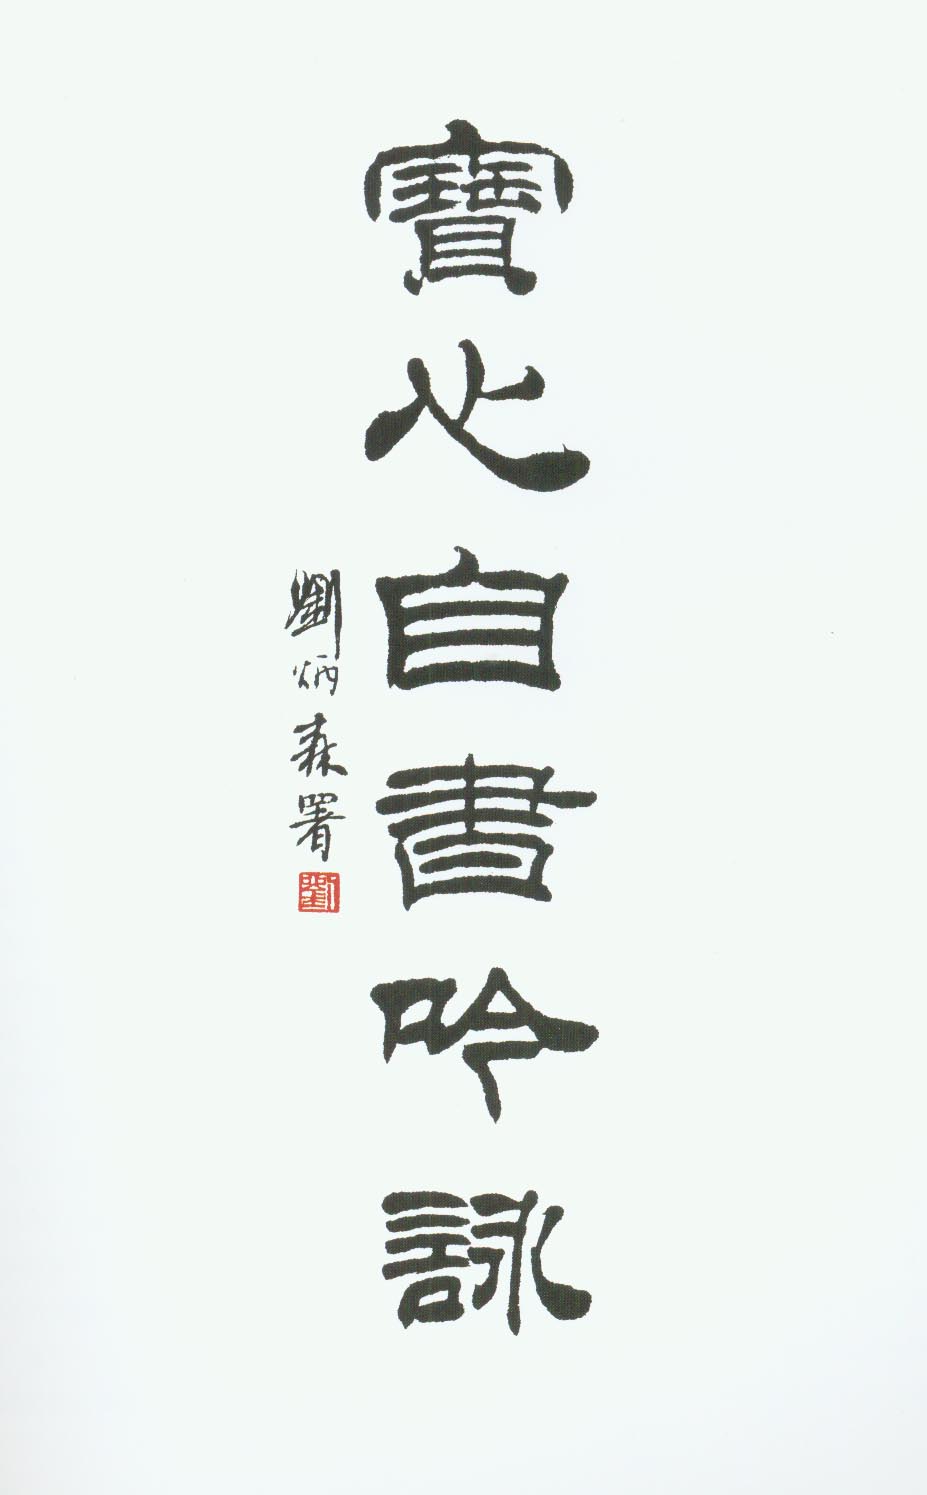 寶心自書吟詠
劉炳森署
劉